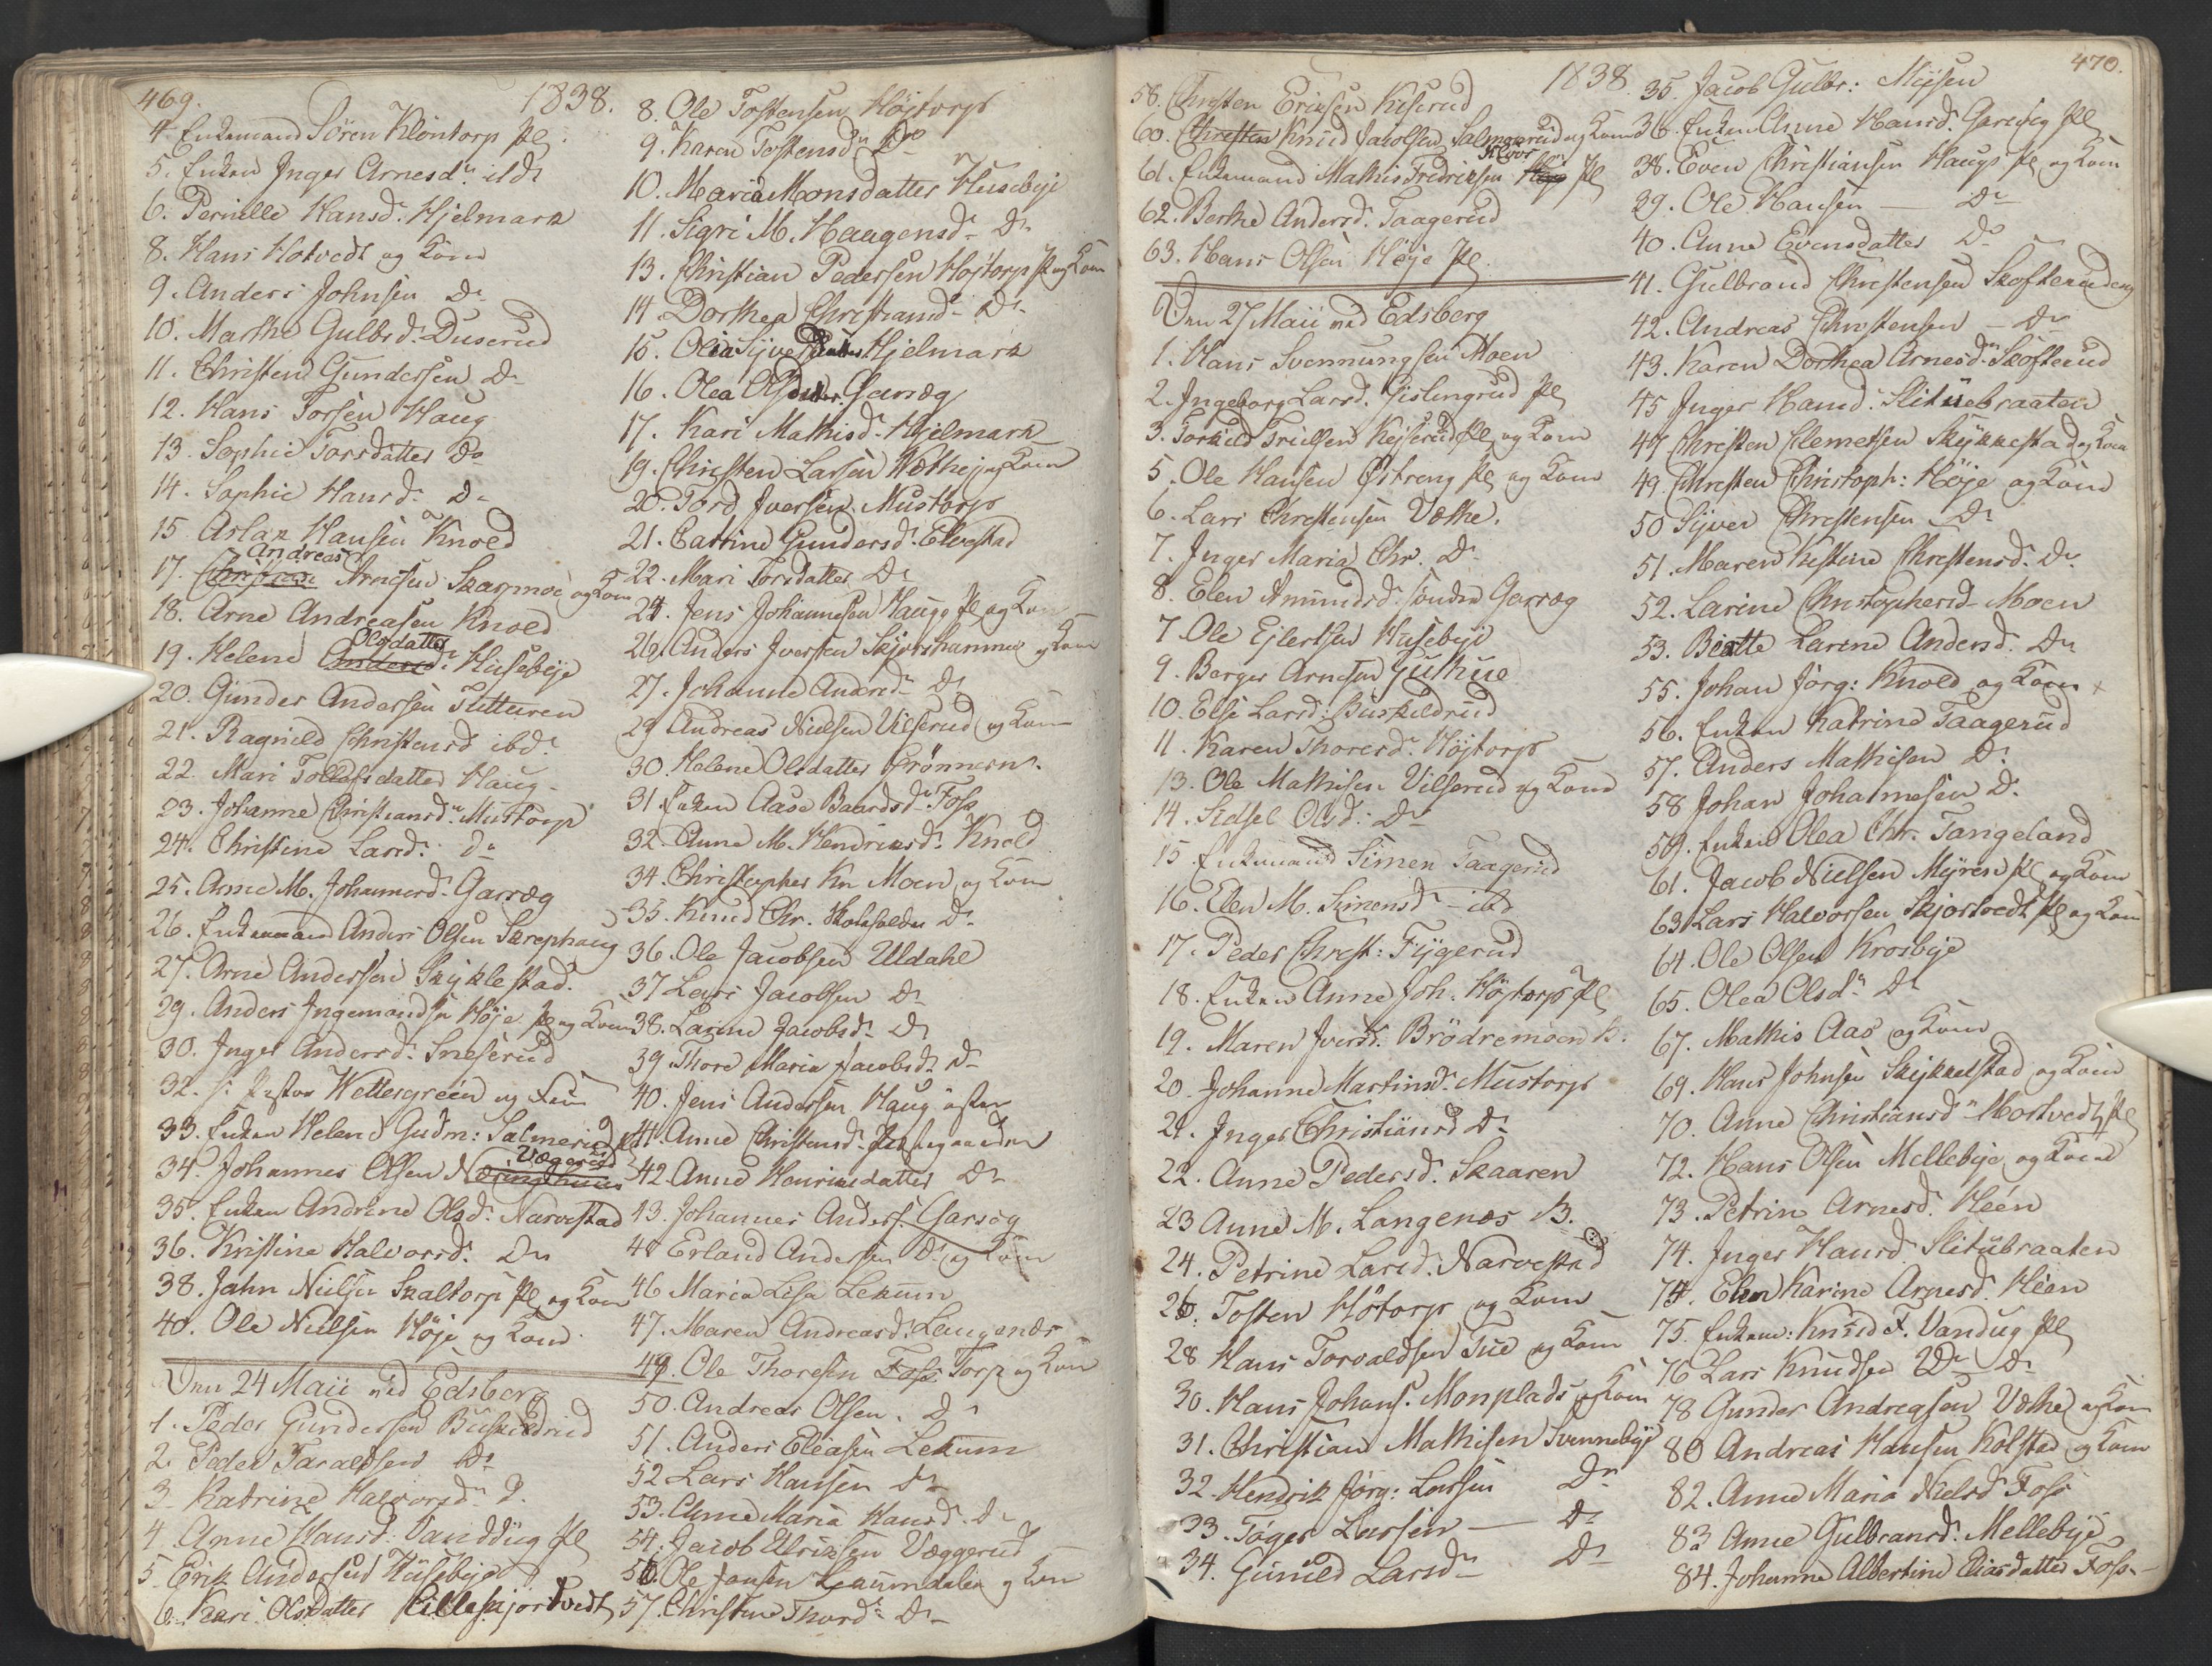 469.
1838.
4. Enkemand Sören Klontorp pl
5. Enken Inger Arnesd: ibd
6. Pernille Hansd. Hjelmark
8. Hans Hotvedt og Kone
9. Anders Johnsen Do
10. Marthe Gulbsd. Duserud
11. Christen Gundersen Do
12. Hans Torsen Haug
13. Sophie Torsdatter Do
14. Sophie Hansd. Do
15 Aslak Hansen Knold
Andreas
17. Arnesen Skarpmoe og Kone
18. Arne Andreasen Knold
Olsdatter
19. Helene Anders: Husebye
20. Gunder Andersen
21. Ragnild Christensd ibd
22 Mari Tollefsdatter Haug
23. Johanne Christiansd. Mustorp
24. Christine Larsd. do
25. Anne M. Johannesd. Garseg
26. Enkemand Anders Olsen Sarephaug
27. Arne Andersen Skyklestad.
29. Anders Ingemandsen Höje pl og Kone
30. Inger Andersd. Sneserud
32. Hr Pastor Wettergreen og Frue
33. Enken Helene Gudm: Salmerud
Væggerud
34. Johannes Olsen
35. Enken Andrine Olsd. Narvestad
36. Kristine Halvorsd. Do
38. Jahn Nielsen Skaltorp pl og Kone
40. Ole Nielsen Höje og Kone
Den 24 Maii ved Edsberg
1. Peder Gundersen Buskildrud
2. Peder Taraldsen Do
3. Katrine Halvorsd. D.
4. Anne Hansd. Vanddug pl
5. Erik Andersen Husebye
6. Kari Olsdatter Lilleskjortvedt
8. Ole Tostensen Höjtorp
9. Karen Tostensd. Do
10. Maria Monsdatter Husebye
11. Sigri M. Haagensd. Do
13. Christian Pedersen Hojtorp pl og Kone
14 Dorthea Christiansd. Do.
15. Olea Syversdatter Hjelmark
16. Olea Olsdatter. Garseg
17. Kari Mathisd. Hjelmark
19. Christen Larsen Wæthe og Kone
20. Tord Iversen Mustorp
21. Catrine Gundersd. Elvestad
22. Mari Torsdatter Do
24. Jens Johannesen Haugs pl og Kone
26. Anders Iversen Skjorshammer og Kone
27. Johanne Andersd. Do
29 Andreas Nielsen Vilserud og Kone
30. Helene Olsdatter Grönnern.
31. Enken Aase Baardsd. Foss
32. Anne M. Hendriksd. Knold
34. Christopher Kn Moen og Kone
35. Knud Chr. Do.
36. Ole Jacobsen Uldahl
37 Lars Jacobsen Do
38. Larine Jacobsd. Do
39 Thore Maria Jacobsd. Do
40. Jens Andersen Haug östre
41. Anne Christensd.
42. Anne Henriksdatter Do
43. Johannes Anders. Garseg
45 Erland Andersen Do og Kone
46 Maria Lisa Lekum
47. Maren Andreasd. Langenæs
49. Ole Thoresen Foss Torp og Kone
50. Andreas Olsen. Do
51. Anders Eliasen Lekum
52 Lars Hansen Do
53. Anne Maria Hansd. Do
54. Jacob Ulriksen Væggerud
56. Ole Jansen og Kone
57. Christine Thord: Do
470.
1838.
58. Christen Eriksen Keserud
60. Christen Knud Jacobsen Salmerud og Kone
Kloss
61. Enkemand Mathis Fredriksen pl
62. Berthe Andersd. Taagerud
63. Hans Olsen Höje pl.
Den 27 Maii ved Edsberg
1. Hans Svennungsen Moen
2. Ingeborg Larsd. Gislingrud pl
3. Torkild Trulsen Kejserud pl og Kone
5. Ole Hansen Östreng pl og Kone
6. Lars Christensen Væthe.
7. Inger Maria Chr. Do
8. Elen Amundsd. söndre Garseg
7. Ole Ejlertsen Husebye
9. Borger Arnesen Guthue
10. Else Larsd: Buskildrud
11. Karen Thoresd. Höjtorp
13. Ole Mathisen Vilserud og Kone
14. Sidsel Olsd: Do
15 Enkemand Simen Taagerud
16. Elen M. Simensd. ibd
17. Peder Christ: Fygerud
18. Enken Anne Joh. Höjtorp pl
19. Maren Iversd. Brödremoen
20. Johanne Martinsd. Mustorp
21. Inger Christiansd Do
22. Anne Pedersd. Skaaren
23 Anne M. Langenæs B.
24. Petrine Larsd. Narvestad
26. Tosten Hötorp og Kone
28 Hans Torvaldsen Tue og Kone
30. Hans Johans. Monplads og Kone
31. Christian Mathisen Svennebye
32. Hendrik Jörg: Larsen Do
33. Töger Larsen Do
34. Gunild Larsd. Do
35. Jacob Gulbr: Mysen
36. Enken Anne Hansd. Garseg pl
38. Even Christiansen Haugs pl og Kone
39. Ole Hansen Do
40. Anne Evensdatter Do
41. Gulbrand Christensen Skofterudeng
42. Andreas Christensen Do
43. Karen Dorthea Arnesd. Skofterud
45 Inger Hansd. Slitubraaten
47 Christen Clemetsen Skykkestad og Kone
49. Christen Christoph: Höje og Kone
50 Syver Christensen Do
51. Maren Kistine Christensd. Do
52. Larine Christophersd. Moen
53. Beatte Larine Andersd. Do
55. Johan Jörg: Knold og Kone
56. Enken Katrine Taagerud
57. Anders Mathisen Do
58 Johan Johannesen D.
59. Enken Olea Chr. Tangeland
61. Jacob Nielsen Myrene pl og Kone
63 Lars Halvorsen Skjortvedt pl og Kone
64. Ole Olsen Krosbye
65. Olea Olsd. Do
67. Mathis Aas og Kone
69. Hans Johnsen Skykkelstad og Kone
70. Anne Christiansd. Mortvedt pl
72. Hans Olsen Mellebye og Kone
73. Petrine Arnesd. Heen
74. Inger Hansd. Slitubraaten
74. Elen Karine Arnesd. Heen
75. Enkem: Knud F. Vandug pl
76 Lars Knudsen Do Do
78 Gunder Andreasen Væthe og Kone
80 Andreas Hansen Kolstad og Kone
82. Anne Maria Nielsd Foss
83 Anne Gulbransd. Mellebye
84. Johanne Albertine Eliasdatter Foss.